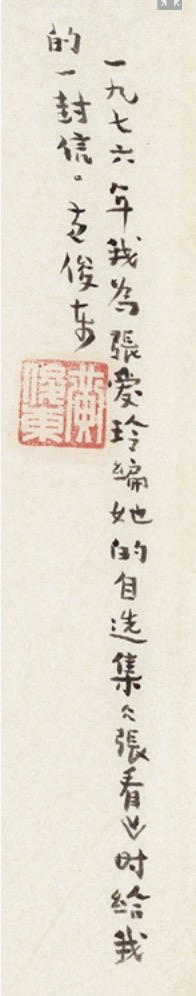 一九七六年我為張愛玲編她的自选集《張看》时给我
的一封信。黄俊东
黃俊東